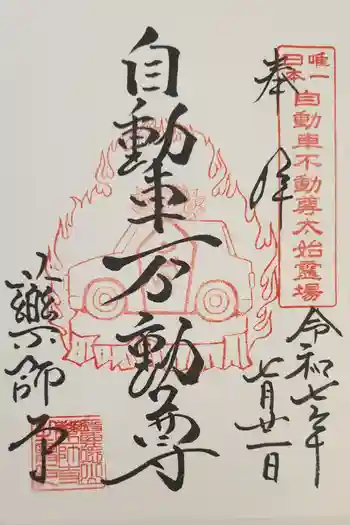 奉拝
唯一
日本
自動車不動尊太始靈場
令和七年
七月廿一日
自動車不動尊
薬師寺